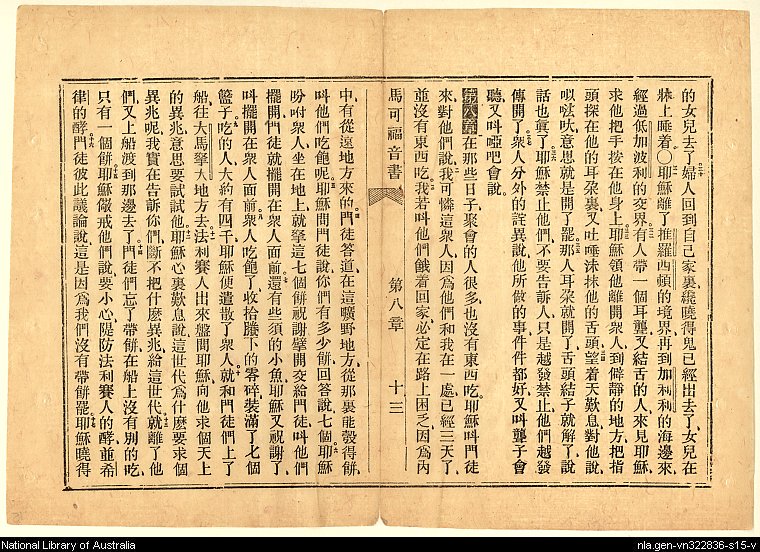 的女兒去了婦人回到自己家裏纔曉得鬼已經出去了女兒在
牀上睡着〇耶穌離了推羅西頓的境界再到加利利的海邊來
經過低加波利的交界有人帶一個耳聾又結舌的人來見耶穌
求他把手按在他身上耶穌領他離開衆人到僻靜的地方把指
頭探在他的耳朶裏又吐唾沫抹他的舌頭望着天歎息對他說
以法大意思就是開了罷那人耳朶就開了舌頭結子就解了說
話也眞了耶穌禁止他們不要告訴人只是越發禁止他們越發
傳開了衆人分外的詫異說他所做的事件件都好又叫聾子會
聽又叫啞吧會說
第八章在那些日子聚會的人很多也沒有東西吃耶穌叫門徒
來對他們說我可憐這衆人因爲他們和我在一處已經三天了
並沒有東西吃我若叫他們餓着回家必定在路上困乏因爲內
馬可福音書 第八章 十三
中有從遠地方來的門徒答道在這曠野地方從那裏能彀得餅
叫他們吃飽呢耶穌問門徒說你們有多少餅回答說七個耶穌
吩咐衆人坐在地上就拏這七個餅祝謝擘開交給門徒叫他們
擺開門徒就擺開在衆人面前還有些須的小魚耶穌又祝謝了
叫擺開在衆人面前衆人吃飽了收拾賸下的零碎裝滿了七個
籃子吃的人大約有四千耶穌便遣散了衆人就和門徒們上了
船往大馬拏大地方去法利賽人出來盤問耶穌向他求個天上
的異兆意思要試試他耶穌心裏歎息說這世代爲什麼要求個
異兆呢我實在告訴你們斷不把什麼異兆給這世代就離了他
們又上船渡到那邊去了門徒們忘了帶餅在船上沒有別的吃
只有一個餅耶穌儆戒他們說要小心隄防法利賽人的酵並希
律的酵門徒彼此議論說這是因爲我們沒有帶餅罷耶穌曉得
National Library of Australia
nla.gen-vn322836-s15-v